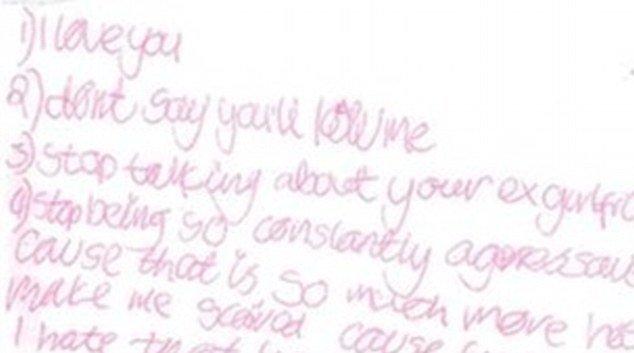 1) I love you
2) don't say you'll kill me
3) Stop talking about your ex girlfr
4) stop being so constantly
cause that is so much more
make me scared cause
I hate that